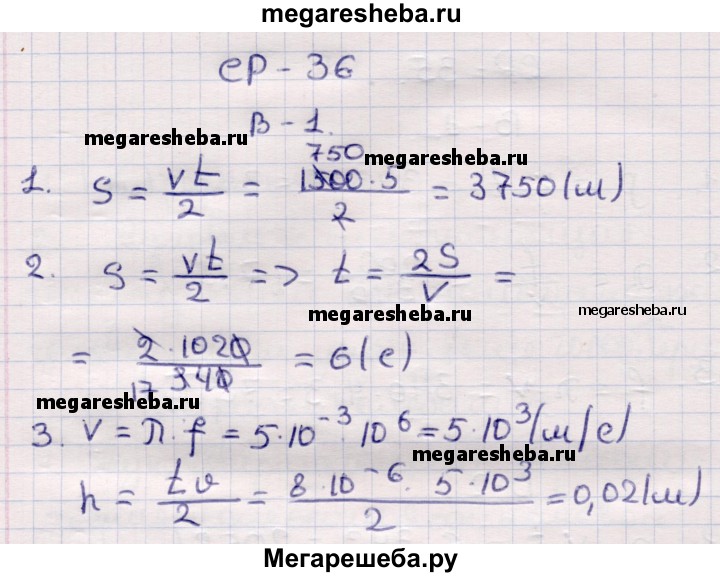 megaresheba.ru
СР - 36
В - 1.
megaresheba.ru
750
megaresheba.ru
1. S = vt/2 = 1500·5/2 = 3750(м)
2. S = vt/2 => t = 2S/V =
megaresheba.ru
megaresheba.ru
= 2·1020/340 = 6(с)
17
megaresheba.ru
3. V = Л·f = 5·10⁻³·10⁶ = 5·10³(м/с)
megaresheba.ru
h = tv/2 = 8·10⁻⁶·5·10³/2 = 0,02(м)
Мегарешеба.ру